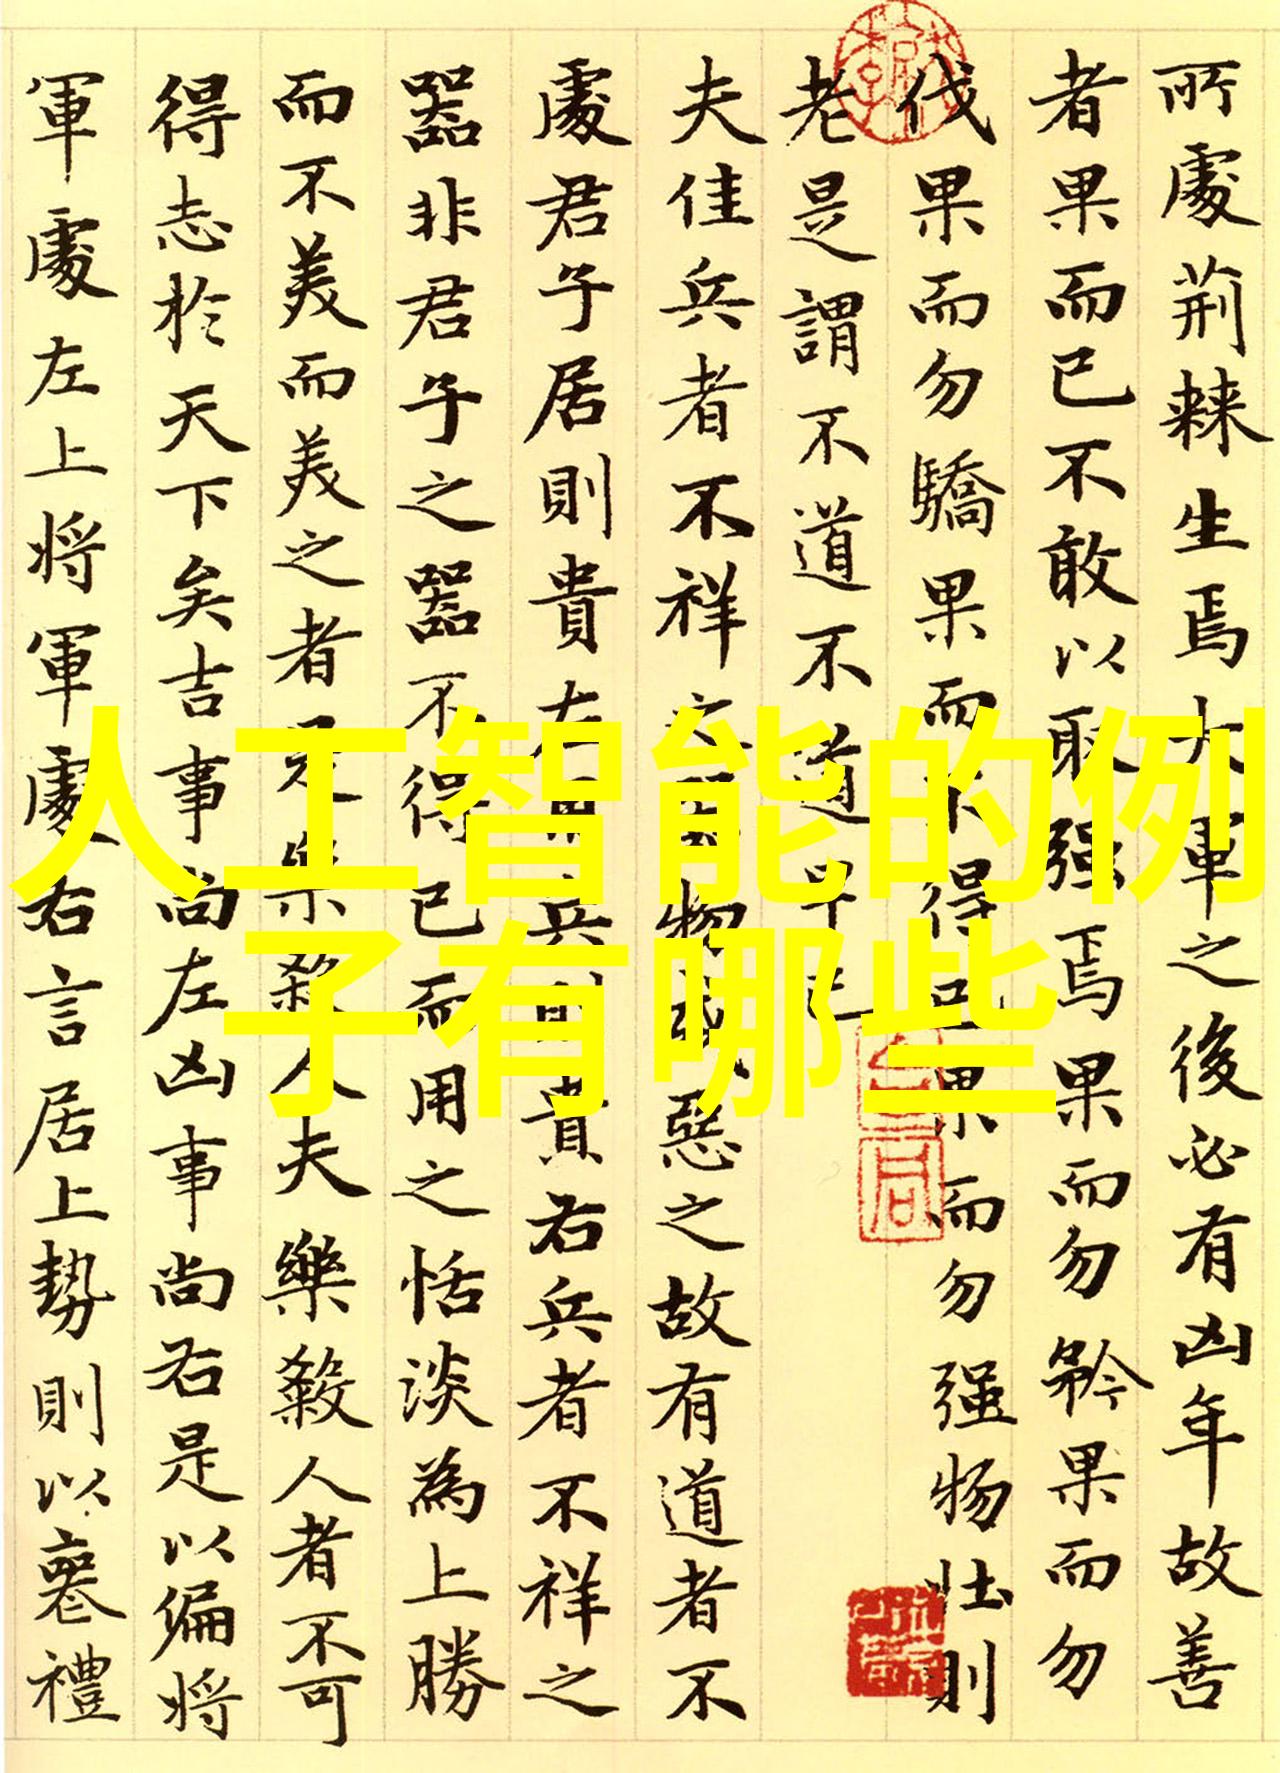 所處荊棘生焉大軍之後必有凶年故善
者果而已不敢以取强焉果而勿矜果而勿
伐果而勿驕果而不得已果而勿强物壮則
老是謂不道不道早已
夫佳兵者不祥之器物或惡之故有道者不
處君子居則貴左用兵則貴右兵者不祥之
器非君子之器不得已而用之恬淡為上勝
而不美而美之者是樂殺人夫樂殺人者不可
得志於天下矣吉事尚左凶事尚右是以偏將
軍處左上将軍處右言居上勢則以喪禮
人工智能的例
子有哪些